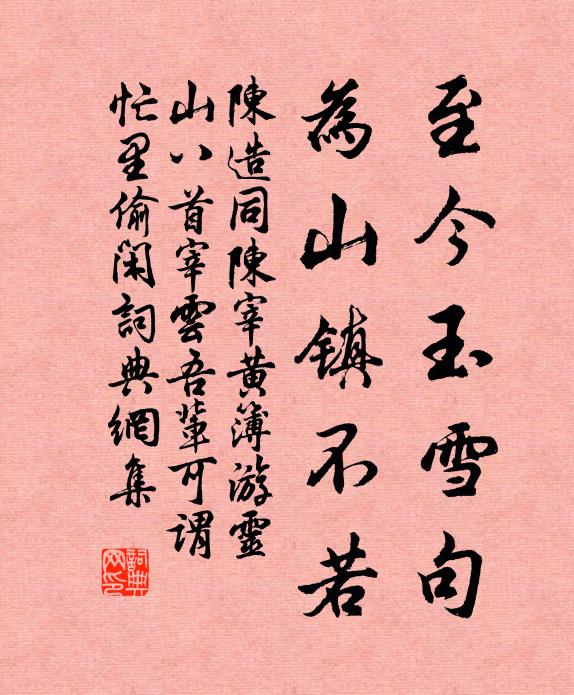 至今玉雪句
為山鎮不若
陳造同陳宰黃簿游靈
山八首宰雲吾輩可謂
忙里偷閑詞典網集
詞典
网印